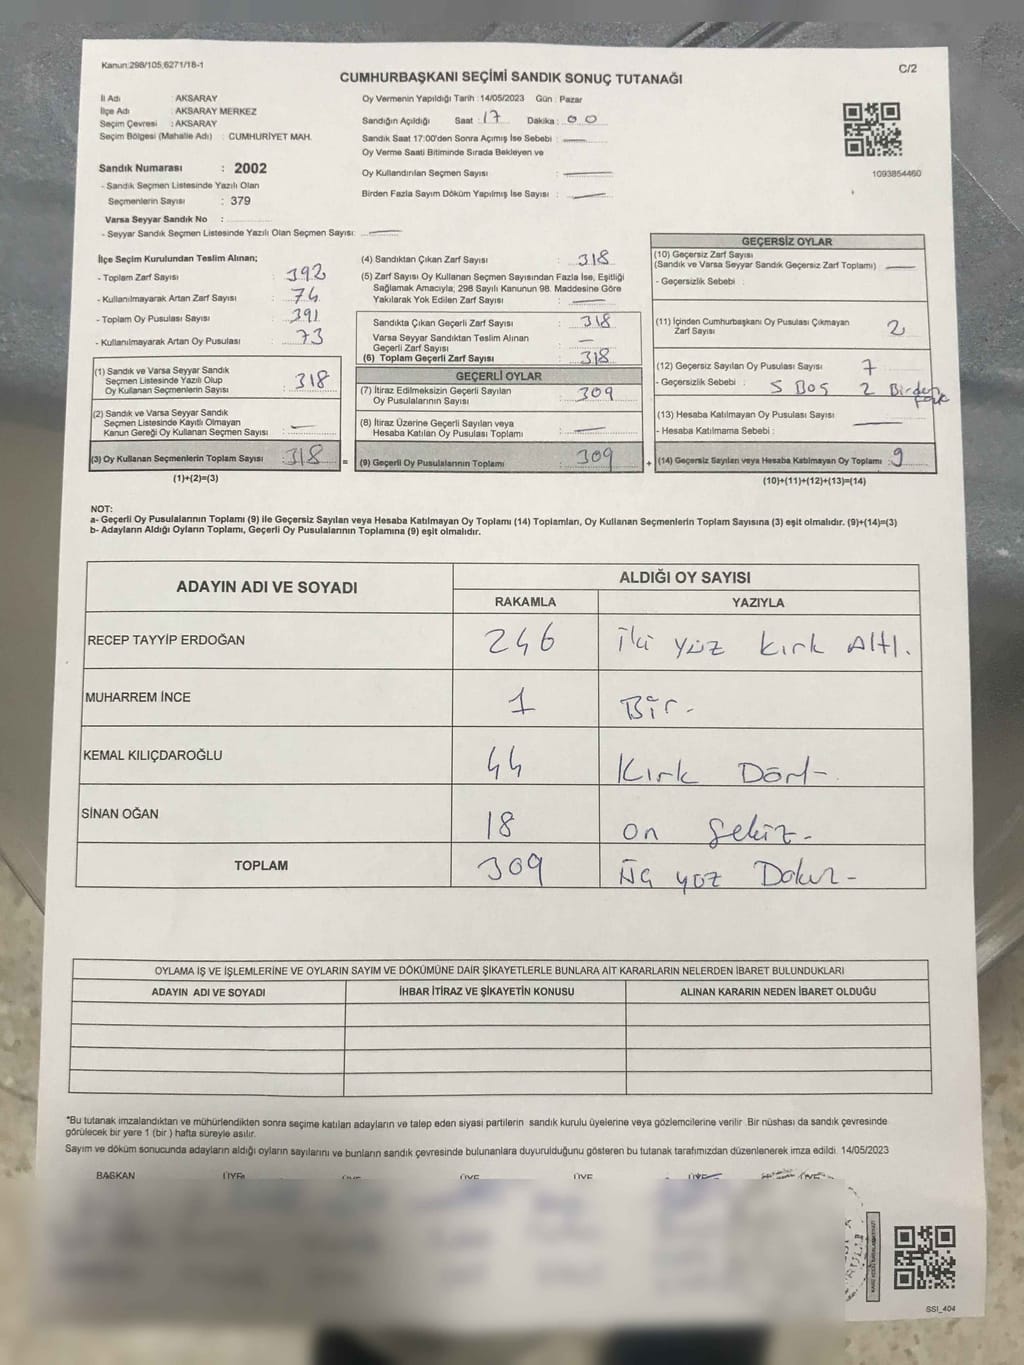 Kanun:298/105,6271/18-1
C/2
CUMHURBAŞKANI SEÇİMİ SANDIK SONUÇ TUTANAĞI
İl Adı : AKSARAY
İlçe Adı : AKSARAY MERKEZ
Seçim Çevresi : AKSARAY
Seçim Bölgesi (Mahalle Adı) : CUMHURİYET MAH.
Sandık Numarası : 2002
- Sandık Seçmen Listesinde Yazılı Olan
Seçmenlerin Sayısı : 379
Varsa Seyyar Sandık No :
- Seyyar Sandık Seçmen Listesinde Yazılı Olan Seçmen Sayısı: —
Oy Vermenin Yapıldığı Tarih : 14/05/2023 Gün : Pazar
Sandığın Açıldığı Saat : 17 Dakika : 00
Sandık Saat 17:00'den Sonra Açılmış İse Sebebi : —
Oy Verme Saati Bitiminde Sırada Bekleyen ve
Oy Kullandırılan Seçmen Sayısı : —
Birden Fazla Sayım Döküm Yapılmış İse Sayısı : —
1093854460
İlçe Seçim Kurulundan Teslim Alınan;
- Toplam Zarf Sayısı : 392
- Kullanılmayarak Artan Zarf Sayısı : 74
- Toplam Oy Pusulası Sayısı : 391
- Kullanılmayarak Artan Oy Pusulası : 73
(1) Sandık ve Varsa Seyyar Sandık
Seçmen Listesinde Yazılı Olup
Oy Kullanan Seçmenlerin Sayısı : 318
(2) Sandık ve Varsa Seyyar Sandık
Seçmen Listesinde Kayıtlı Olmayan
Kanun Gereği Oy Kullanan Seçmen Sayısı : —
(3) Oy Kullanan Seçmenlerin Toplam Sayısı : 318
(1)+(2)=(3)
(4) Sandıktan Çıkan Zarf Sayısı : 318
(5) Zarf Sayısı Oy Kullanan Seçmen Sayısından Fazla İse, Eşitliği
Sağlamak Amacıyla; 298 Sayılı Kanunun 98. Maddesine Göre
Yakılarak Yok Edilen Zarf Sayısı : —
Sandıkta Çıkan Geçerli Zarf Sayısı : 318
Varsa Seyyar Sandıktan Teslim Alınan
Geçerli Zarf Sayısı : —
(6) Toplam Geçerli Zarf Sayısı : 318
GEÇERLİ OYLAR
(7) İtiraz Edilmeksizin Geçerli Sayılan
Oy Pusulalarının Sayısı : 309
(8) İtiraz Üzerine Geçerli Sayılan veya
Hesaba Katılan Oy Pusulası Toplamı : —
= (9) Geçerli Oy Pusulalarının Toplamı : 309
GEÇERSİZ OYLAR
(10) Geçersiz Zarf Sayısı
(Sandık ve Varsa Seyyar Sandık Geçersiz Zarf Toplamı) : —
- Geçersizlik Sebebi :
(11) İçinden Cumhurbaşkanı Oy Pusulası Çıkmayan
Zarf Sayısı : 2
(12) Geçersiz Sayılan Oy Pusulası Sayısı : 7
- Geçersizlik Sebebi : 5 Boş 2 Birden
(13) Hesaba Katılmayan Oy Pusulası Sayısı : —
- Hesaba Katılmama Sebebi :
+ (14) Geçersiz Sayılan veya Hesaba Katılmayan Oy Toplamı : 9
(10)+(11)+(12)+(13)=(14)
NOT:
a- Geçerli Oy Pusulalarının Toplamı (9) ile Geçersiz Sayılan veya Hesaba Katılmayan Oy Toplamı (14) Toplamları, Oy Kullanan Seçmenlerin Toplam Sayısına (3) eşit olmalıdır. (9)+(14)=(3)
b- Adayların Aldığı Oyların Toplamı, Geçerli Oy Pusulalarının Toplamına (9) eşit olmalıdır.
ADAYIN ADI VE SOYADI
ALDIĞI OY SAYISI
RAKAMLA YAZIYLA
RECEP TAYYİP ERDOĞAN 246 iki yüz kırk Altı.
MUHARREM İNCE 1 Bir.
KEMAL KILIÇDAROĞLU 44 Kırk Dört
SİNAN OĞAN 18 on sekiz
TOPLAM 309 üç yüz Dokuz
OYLAMA İŞ VE İŞLEMLERİNE VE OYLARIN SAYIM VE DÖKÜMÜNE DAİR ŞİKAYETLERLE BUNLARA AİT KARARLARIN NELERDEN İBARET BULUNDUKLARI
ADAYIN ADI VE SOYADI İHBAR İTİRAZ VE ŞİKAYETİN KONUSU ALINAN KARARIN NEDEN İBARET OLDUĞU
*Bu tutanak imzalandıktan ve mühürlendikten sonra seçime katılan adayların ve talep eden siyasi partilerin sandık kurulu üyelerine veya gözlemcilerine verilir. Bir nüshası da sandık çevresinde
görülecek bir yere 1 (bir) hafta süreyle asılır.
Sayım ve döküm sonucunda adayların aldığı oyların sayılarını ve bunların sandık çevresinde bulunanlara duyurulduğunu gösteren bu tutanak tarafımızdan düzenlenerek imza edildi. 14/05/2023
BAŞKAN ÜYE ÜYE ÜYE ÜYE ÜYE ÜYE
SSI_404